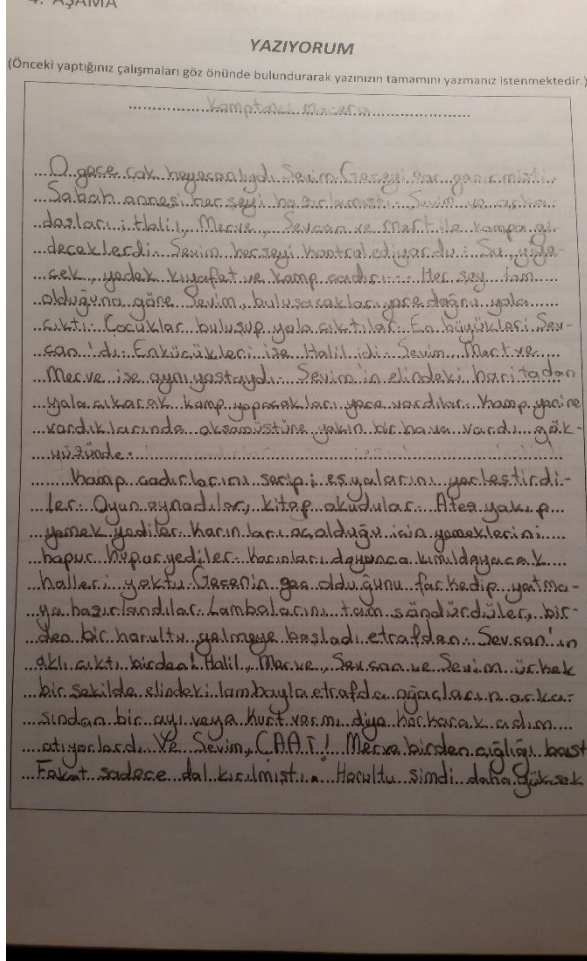 4. AŞAMA
YAZIYORUM
(Önceki yaptığınız çalışmaları göz önünde bulundurarak yazınızın tamamını yazmanız istenmektedir.)
Kamptaki Macera
O gece çok heyecanlıydı Sevim. Geceyi zor geçirmişti.
Sabah annesi her şeyi hazırlamıştı. Sevim ve arka-
daşları; Halil, Merve, Sevcan ve Mert ile kampa gi-
deceklerdi. Sevim herşeyi kontrol ediyordu: Su, yiye-
cek, yedek kıyafet ve kamp çadırı... Her şey tam
olduğuna göre Sevim, buluşacakları yere doğru yola
çıktı. Çocuklar buluşup yola çıktılar. En büyükleri Sev-
can'dı. Enküçükleri ise Halil idi. Sevim, Mert ve
Merve ise aynı yaştaydı. Sevim'in elindeki haritadan
yola çıkarak kamp yapacakları yere vardılar. Kamp yerine
vardıklarında akşamüstüne yakın bir hava vardı gök-
yüzünde.
Kamp çadırlarını serip; eşyalarını yerleştirdi-
ler. Oyun oynadılar, kitap okudular. Ateş yakıp
yemek yediler. Karınları aç olduğu için yemeklerini
hapur hupur yediler. Karınları doyunca kımıldayacak
halleri yoktu. Gecenin geç olduğunu farkedip yatma-
ya hazırlandılar. Lambalarını tam söndürdüler, bir-
den bir horultu gelmeye başladı etrafdan. Sevcan'ın
aklı çıktı birden! Halil, Merve, Sevcan ve Sevim ürkek
bir şekilde elindeki lambayla etrafda ağaçların arka-
sından bir ayı veya kurt varmı diye korkarak adım
atıyorlardı. Ve Sevim, ÇAAT! Merve birden çığlığı bast
Fakat sadece dal kırılmıştı. Horultu şimdi daha yüksek